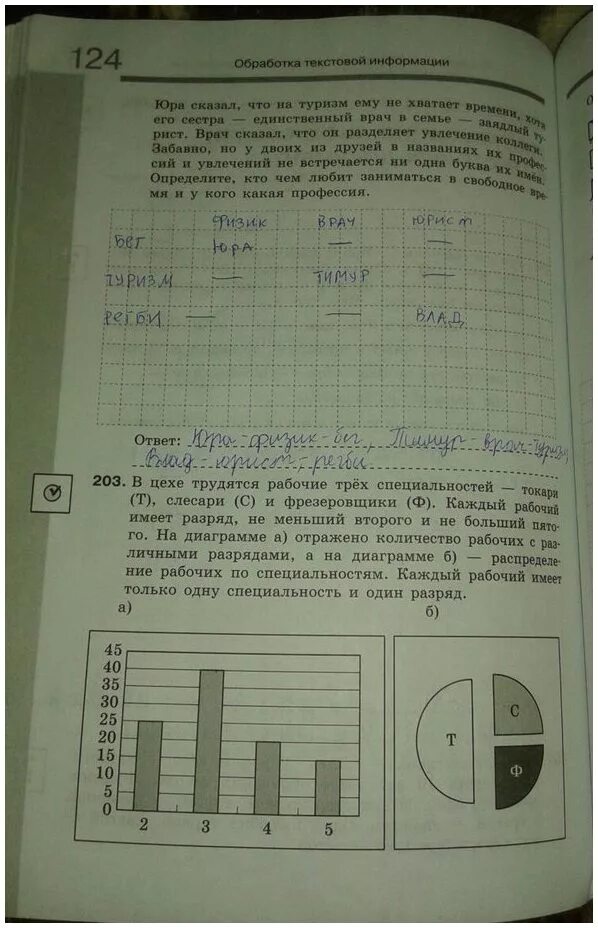 124
Обработка текстовой информации
Юра сказал, что на туризм ему не хватает времени, хотя
его сестра — единственный врач в семье — заядлый ту-
рист. Врач сказал, что он разделяет увлечение коллеги.
Забавно, но у двоих из друзей в названиях их профес-
сий и увлечений не встречается ни одна буква их имён.
Определите, кто чем любит заниматься в свободное вре-
мя и у кого какая профессия.
ФИЗИК ВРАЧ ЮРИСТ
БЕГ ЮРА — —
ТУРИЗМ — ТИМУР —
РЕГБИ — — ВЛАД
Ответ: Юра-физик-бег, Тимур-врач-туризм,
Влад-юрист-регби
203. В цехе трудятся рабочие трёх специальностей — токари
(Т), слесари (С) и фрезеровщики (Ф). Каждый рабочий
имеет разряд, не меньший второго и не больший пято-
го. На диаграмме а) отражено количество рабочих с раз-
личными разрядами, а на диаграмме б) — распределе-
ние рабочих по специальностям. Каждый рабочий имеет
только одну специальность и один разряд.
а) б)
45
40
35
30
25
20
15
10
5
0
2 3 4 5
Т С
Ф